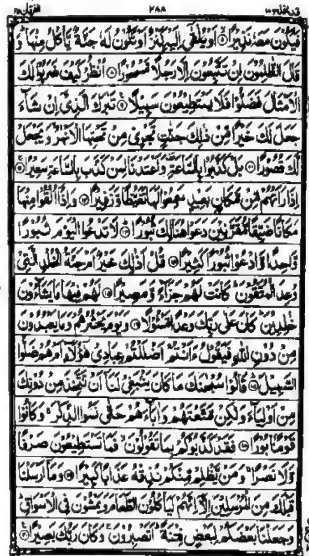 ٢٨٨
فَيَكُوْنَ مَعَهٗ نَذِيْرًا ۙ اَوْ يُلْقٰۤى اِلَيْهِ كَنْزٌ اَوْ تَكُوْنُ لَهٗ جَنَّةٌ يَّاْكُلُ مِنْهَا ؕ وَ
قَالَ الظّٰلِمُوْنَ اِنْ تَتَّبِعُوْنَ اِلَّا رَجُلًا مَّسْحُوْرًا ۝ اُنْظُرْ كَيْفَ ضَرَبُوْا لَكَ
الْاَمْثَالَ فَضَلُّوْا فَلَا يَسْتَطِيْعُوْنَ سَبِيْلًا ۝ تَبٰرَكَ الَّذِيْۤ اِنْ شَآءَ
جَعَلَ لَكَ خَيْرًا مِّنْ ذٰلِكَ جَنّٰتٍ تَجْرِيْ مِنْ تَحْتِهَا الْاَنْهٰرُ ۙ وَيَجْعَلْ
لَّكَ قُصُوْرًا ۝ بَلْ كَذَّبُوْا بِالسَّاعَةِ وَاَعْتَدْنَا لِمَنْ كَذَّبَ بِالسَّاعَةِ سَعِيْرًا ۝
اِذَا رَاَتْهُمْ مِّنْ مَّكَانٍۭ بَعِيْدٍ سَمِعُوْا لَهَا تَغَيُّظًا وَّزَفِيْرًا ۝ وَاِذَاۤ اُلْقُوْا مِنْهَا
مَكَانًا ضَيِّقًا مُّقَرَّنِيْنَ دَعَوْا هُنَالِكَ ثُبُوْرًا ۝ لَا تَدْعُوا الْيَوْمَ ثُبُوْرًا
وَّاحِدًا وَّادْعُوْا ثُبُوْرًا كَثِيْرًا ۝ قُلْ اَذٰلِكَ خَيْرٌ اَمْ جَنَّةُ الْخُلْدِ الَّتِيْ
وُعِدَ الْمُتَّقُوْنَ ؕ كَانَتْ لَهُمْ جَزَآءً وَّمَصِيْرًا ۝ لَهُمْ فِيْهَا مَا يَشَآءُوْنَ
خٰلِدِيْنَ ؕ كَانَ عَلٰى رَبِّكَ وَعْدًا مَّسْـُٔوْلًا ۝ وَيَوْمَ يَحْشُرُهُمْ وَمَا يَعْبُدُوْنَ
مِنْ دُوْنِ اللّٰهِ فَيَقُوْلُ ءَاَنْتُمْ اَضْلَلْتُمْ عِبَادِيْ هٰۤؤُلَآءِ اَمْ هُمْ ضَلُّوا
السَّبِيْلَ ۝ قَالُوْا سُبْحٰنَكَ مَا كَانَ يَنْۢبَغِيْ لَنَاۤ اَنْ نَّتَّخِذَ مِنْ دُوْنِكَ
مِنْ اَوْلِيَآءَ وَلٰكِنْ مَّتَّعْتَهُمْ وَاٰبَآءَهُمْ حَتّٰى نَسُوا الذِّكْرَ ۚ وَكَانُوْا
قَوْمًۢا بُوْرًا ۝ فَقَدْ كَذَّبُوْكُمْ بِمَا تَقُوْلُوْنَ ۙ فَمَا تَسْتَطِيْعُوْنَ صَرْفًا
وَّلَا نَصْرًا ۚ وَمَنْ يَّظْلِمْ مِّنْكُمْ نُذِقْهُ عَذَابًا كَبِيْرًا ۝ وَمَاۤ اَرْسَلْنَا
قَبْلَكَ مِنَ الْمُرْسَلِيْنَ اِلَّاۤ اِنَّهُمْ لَيَاْكُلُوْنَ الطَّعَامَ وَيَمْشُوْنَ فِي الْاَسْوَاقِ ؕ
وَجَعَلْنَا بَعْضَكُمْ لِبَعْضٍ فِتْنَةً ؕ اَتَصْبِرُوْنَ ۚ وَكَانَ رَبُّكَ بَصِيْرًا ۝